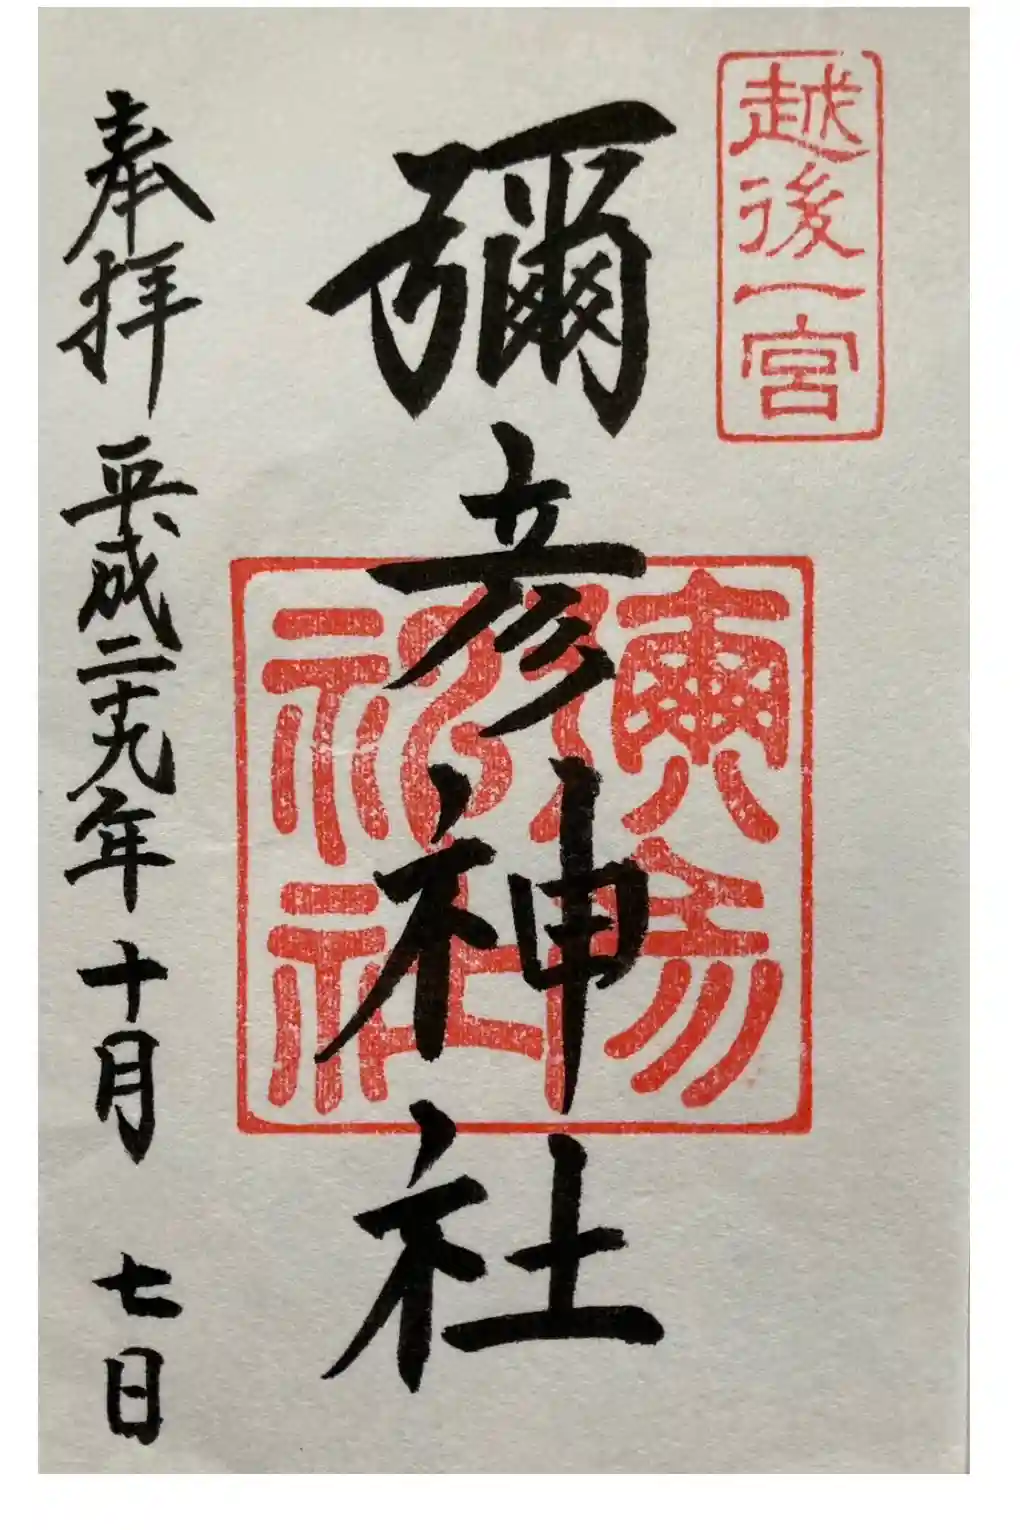 越後一宮
彌彦神社
奉拝 平成二十九年 十月 七日